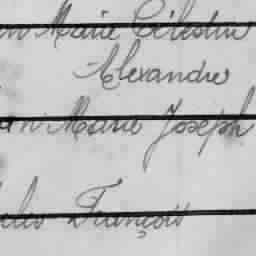 Marie Célestin
Alexandre
Marie Joseph
François